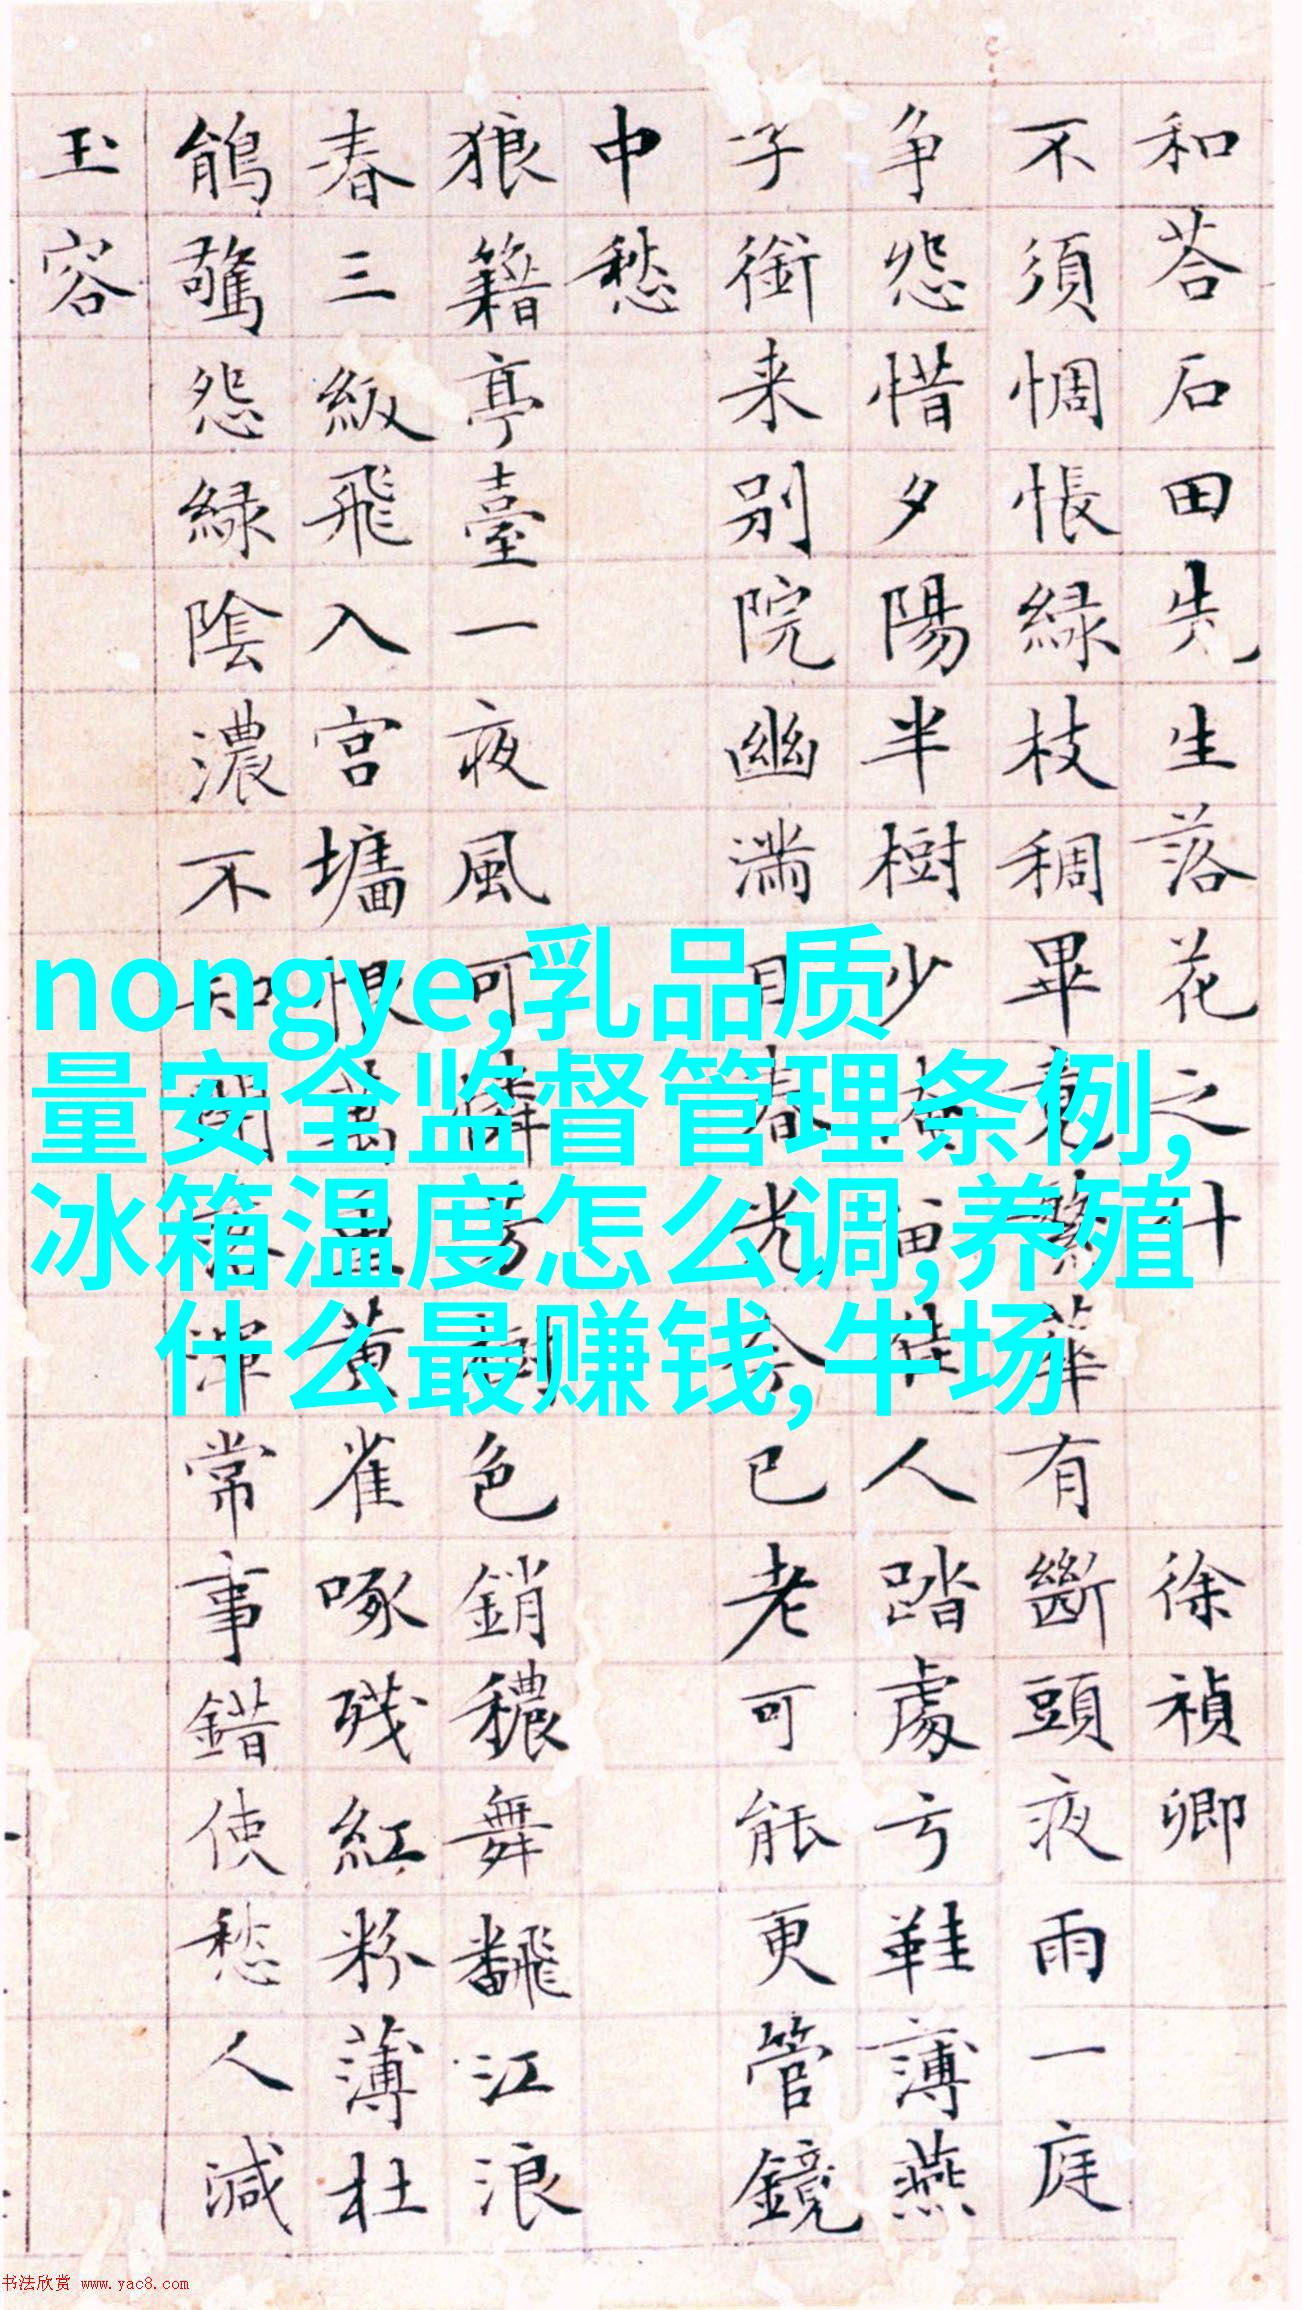 和荅石田先生落花之什 徐禎卿
不須惆悵綠枝稠畢竟繁華有斷頭夜雨一庭
争怨惜夕陽半樹少留佳人踏處弓鞋薄燕
子銜来别院幽滿目春光今已老可能更管鏡
中愁
狼籍亭臺一夜風可憐芳樹色銷穠舞飜江浪
春三級飛入宫墻恨萬重黄雀啄殘紅粉薄杜
鵑驚怨緑陰濃不知開落渾常事錯使愁人減
玉容
nongye,乳品质
量安全监督管理条例,
冰箱温度怎么调,养殖
什么最赚钱,牛场
书法欣赏 www.yac8.com